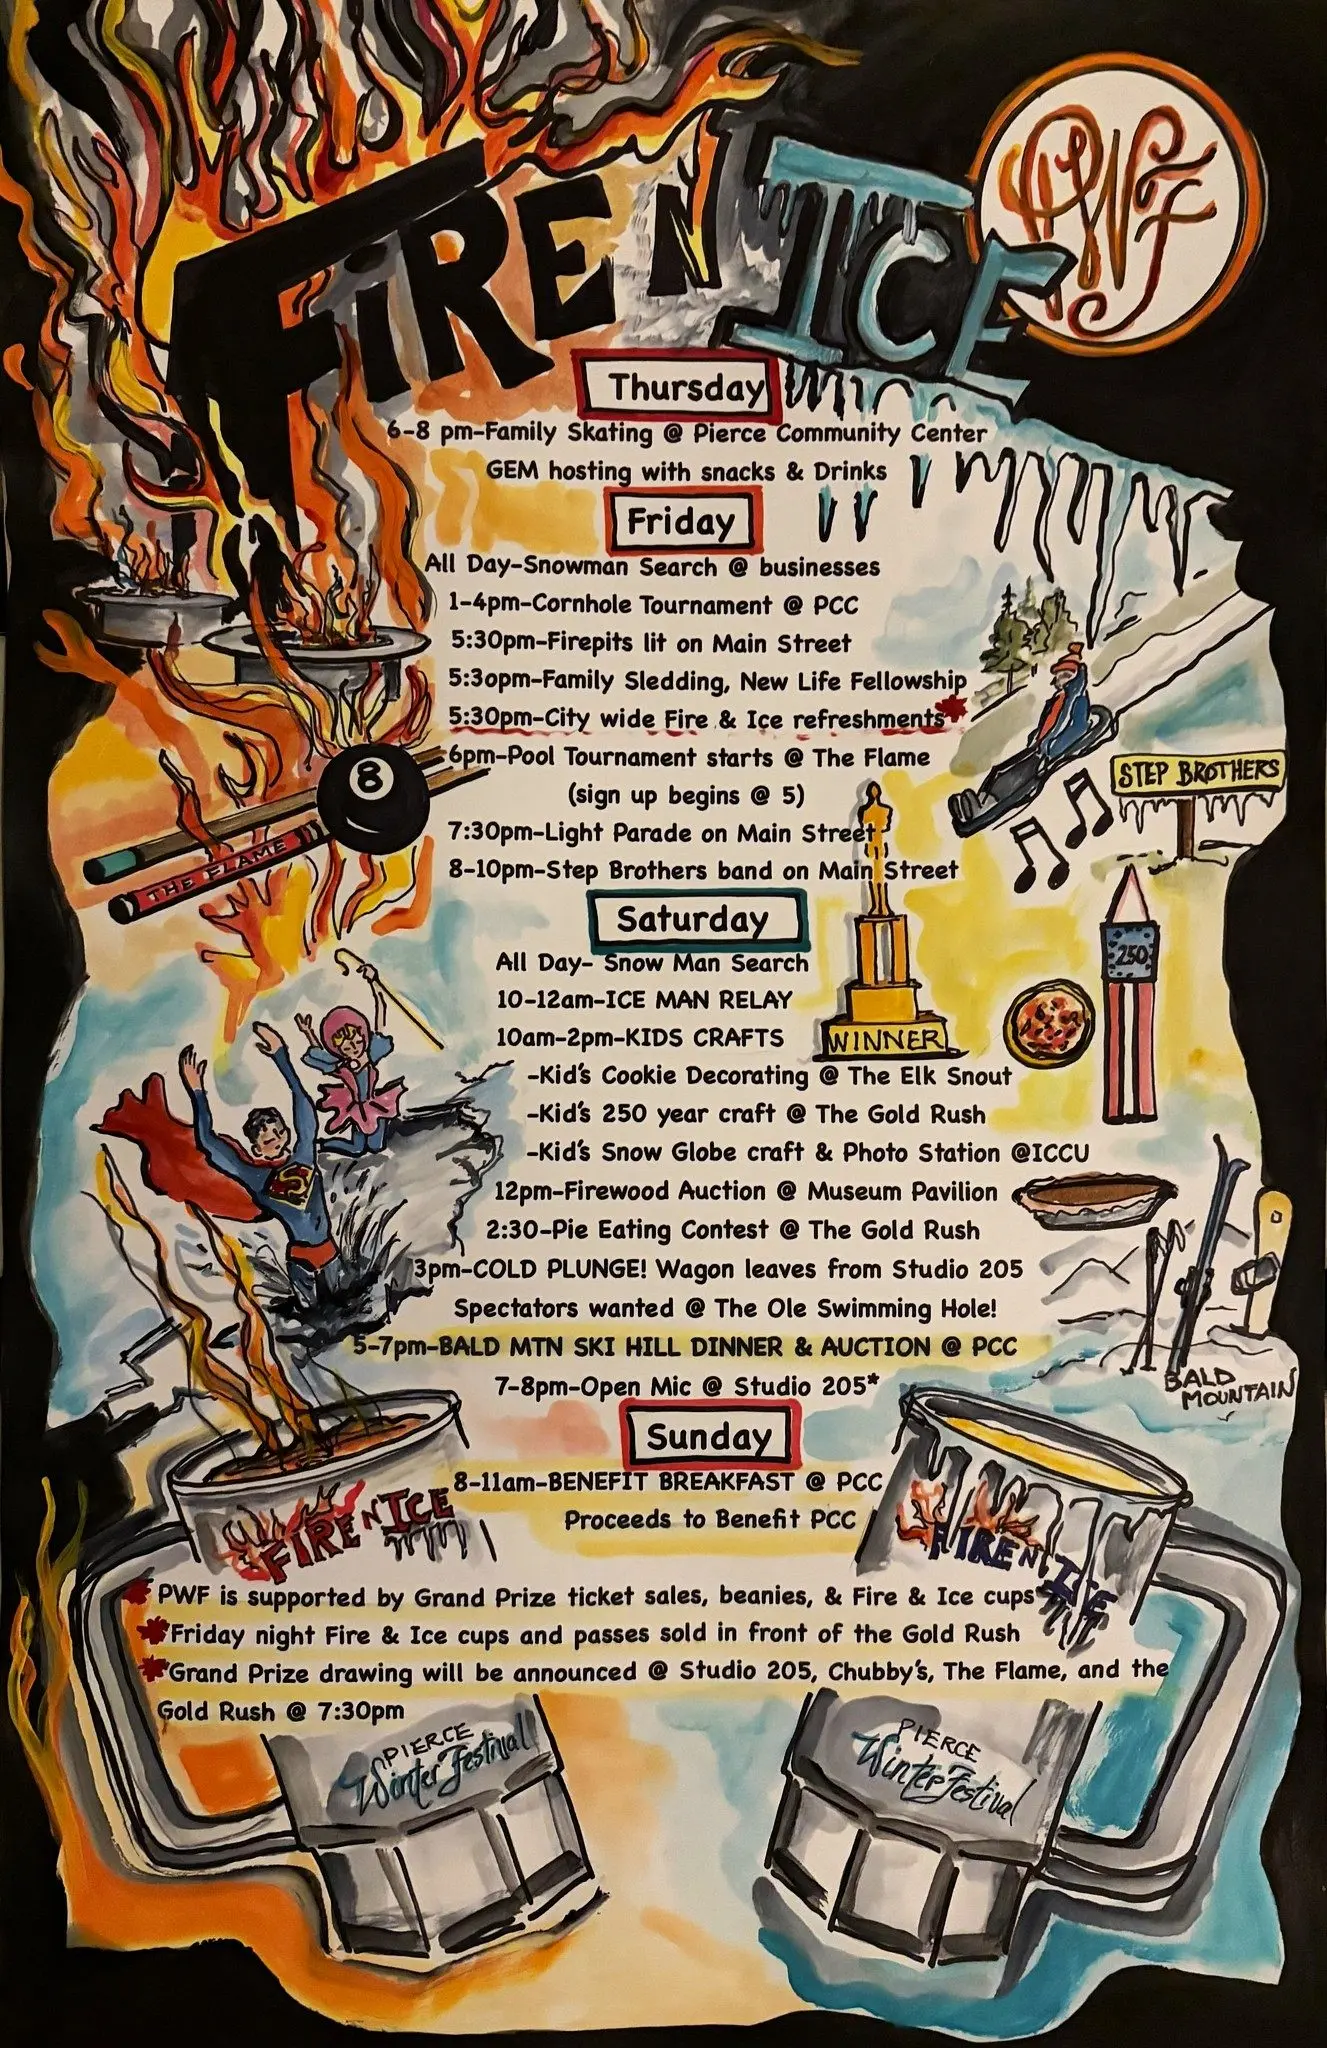 FIRE N ICE
PWF
Thursday
6-8 pm-Family Skating @ Pierce Community Center
GEM hosting with snacks & Drinks
Friday
All Day-Snowman Search @ businesses
1-4pm-Cornhole Tournament @ PCC
5:30pm-Firepits lit on Main Street
5:3opm-Family Sledding, New Life Fellowship
5:30pm-City wide Fire & Ice refreshments*
6pm-Pool Tournament starts @ The Flame
(sign up begins @ 5)
7:30pm-Light Parade on Main Street
8-10pm-Step Brothers band on Main Street
8
THE FLAME
STEP BROTHERS
Saturday
All Day- Snow Man Search
10-12am-ICE MAN RELAY
10am-2pm-KIDS CRAFTS
-Kid's Cookie Decorating @ The Elk Snout
-Kid's 250 year craft @ The Gold Rush
-Kid's Snow Globe craft & Photo Station @ICCU
12pm-Firewood Auction @ Museum Pavilion
2:30-Pie Eating Contest @ The Gold Rush
3pm-COLD PLUNGE! Wagon leaves from Studio 205
Spectators wanted @ The Ole Swimming Hole!
5-7pm-BALD MTN SKI HILL DINNER & AUCTION @ PCC
7-8pm-Open Mic @ Studio 205*
WINNER
250
S
BALD
MOUNTAIN
Sunday
8-11am-BENEFIT BREAKFAST @ PCC
Proceeds to Benefit PCC
FIRE N ICE
FIRE N ICE
* PWF is supported by Grand Prize ticket sales, beanies, & Fire & Ice cups
*Friday night Fire & Ice cups and passes sold in front of the Gold Rush
*Grand Prize drawing will be announced @ Studio 205, Chubby's, The Flame, and the
Gold Rush @ 7:30pm
PIERCE
Winter Festival
PIERCE
Winter Festival